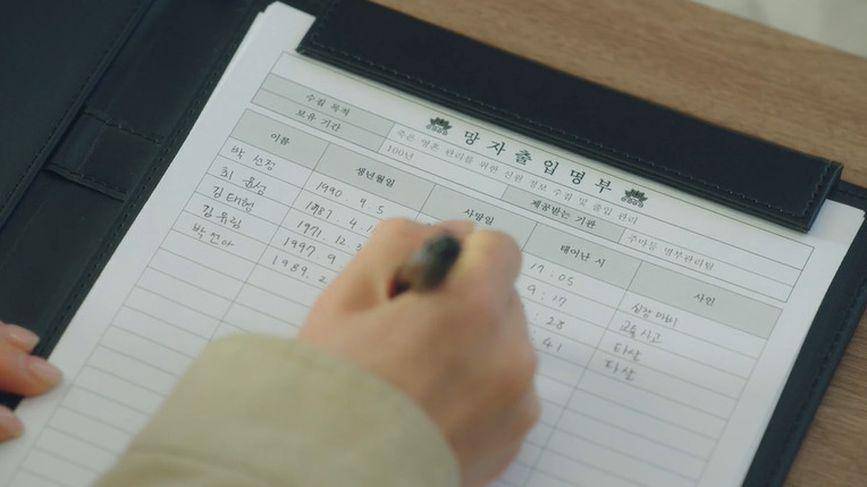 망자출입명부
수집 목적 죽은 영혼 관리를 위한 신원 정보 수집 및 출입 관리
보유 기간 100년 제공받는 기관 주마등 명부관리팀
이름 생년월일 사망일 태어난 시 사인
박 선정 1990. 9. 5 17:05 심장 마비
최 윤성 1987. 4. 1 9:17 교통사고
김 태형 1971. 12. 3 : 28 타살
김 유림 1997. 9 : 41 타살
박 연아 1989. 2